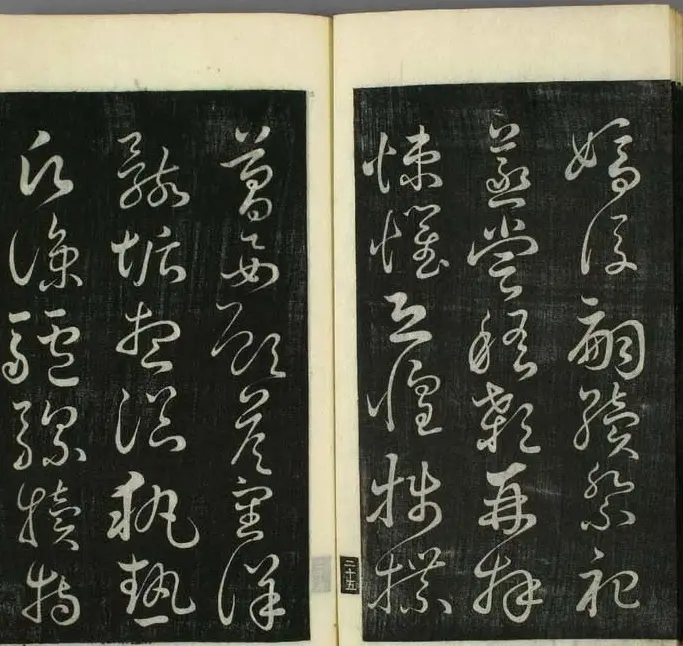 嫡後嗣續祭祀
蒸嘗稽顙再拜
悚懼恐惶牋牒
二十五
簡要顧答審詳
骸垢想浴執熱
願涼驢騾犢特